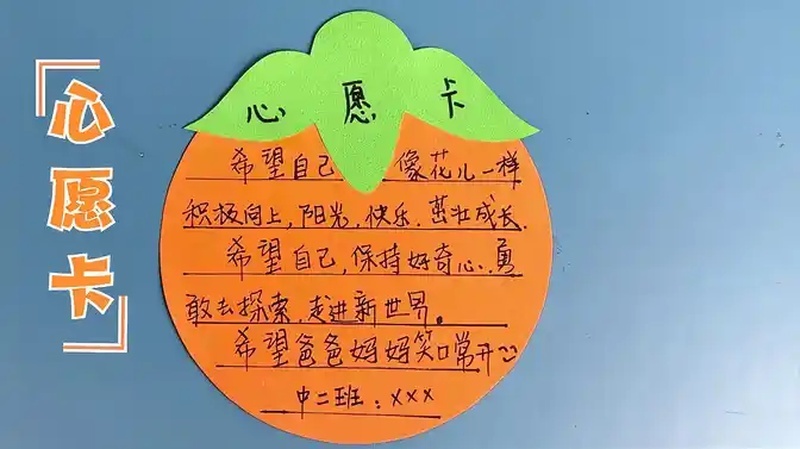 「心愿卡」
心愿卡
希望自己像花儿一样
积极向上,阳光,快乐.茁壮成长.
希望自己,保持好奇心.勇
敢去探索,走进新世界。
希望爸爸妈妈笑口常开
中二班:xxx